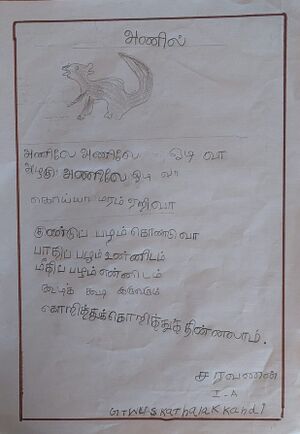 அணில்
அணிலே அணிலே ஓடி வா
அழகு அணிலே ஓடி வா
கொய்யா மரம் ஏறிவா
குண்டுப் பழம் கொண்டுவா
பாதிப் பழம் உன்னிடம்
மீதிப் பழம் என்னிடம்
கூடிக் கூடி இருவரும்
கொறித்துக்கொறித்துத் தின்னலாம்.
சரவணன்
I-A
GTWUS Kathalakkandi